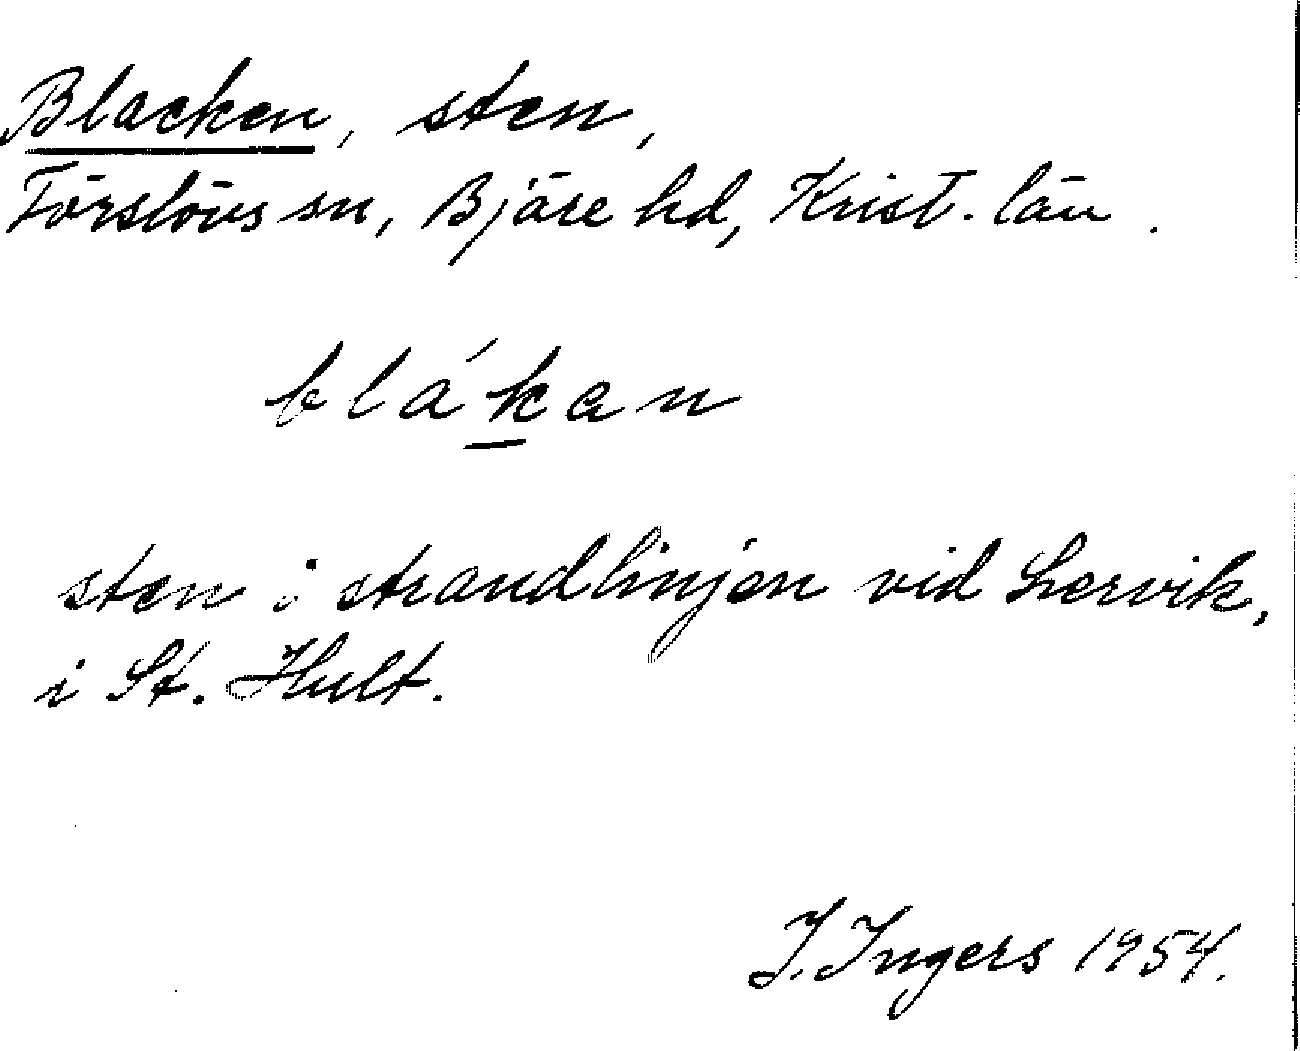 Blacken, sten,
Förslövs sn, Bjäre hd, Krist. län.
blákan
sten i strandlinjen vid Lervik,
i St. Hult.
I. Ingers 1954.